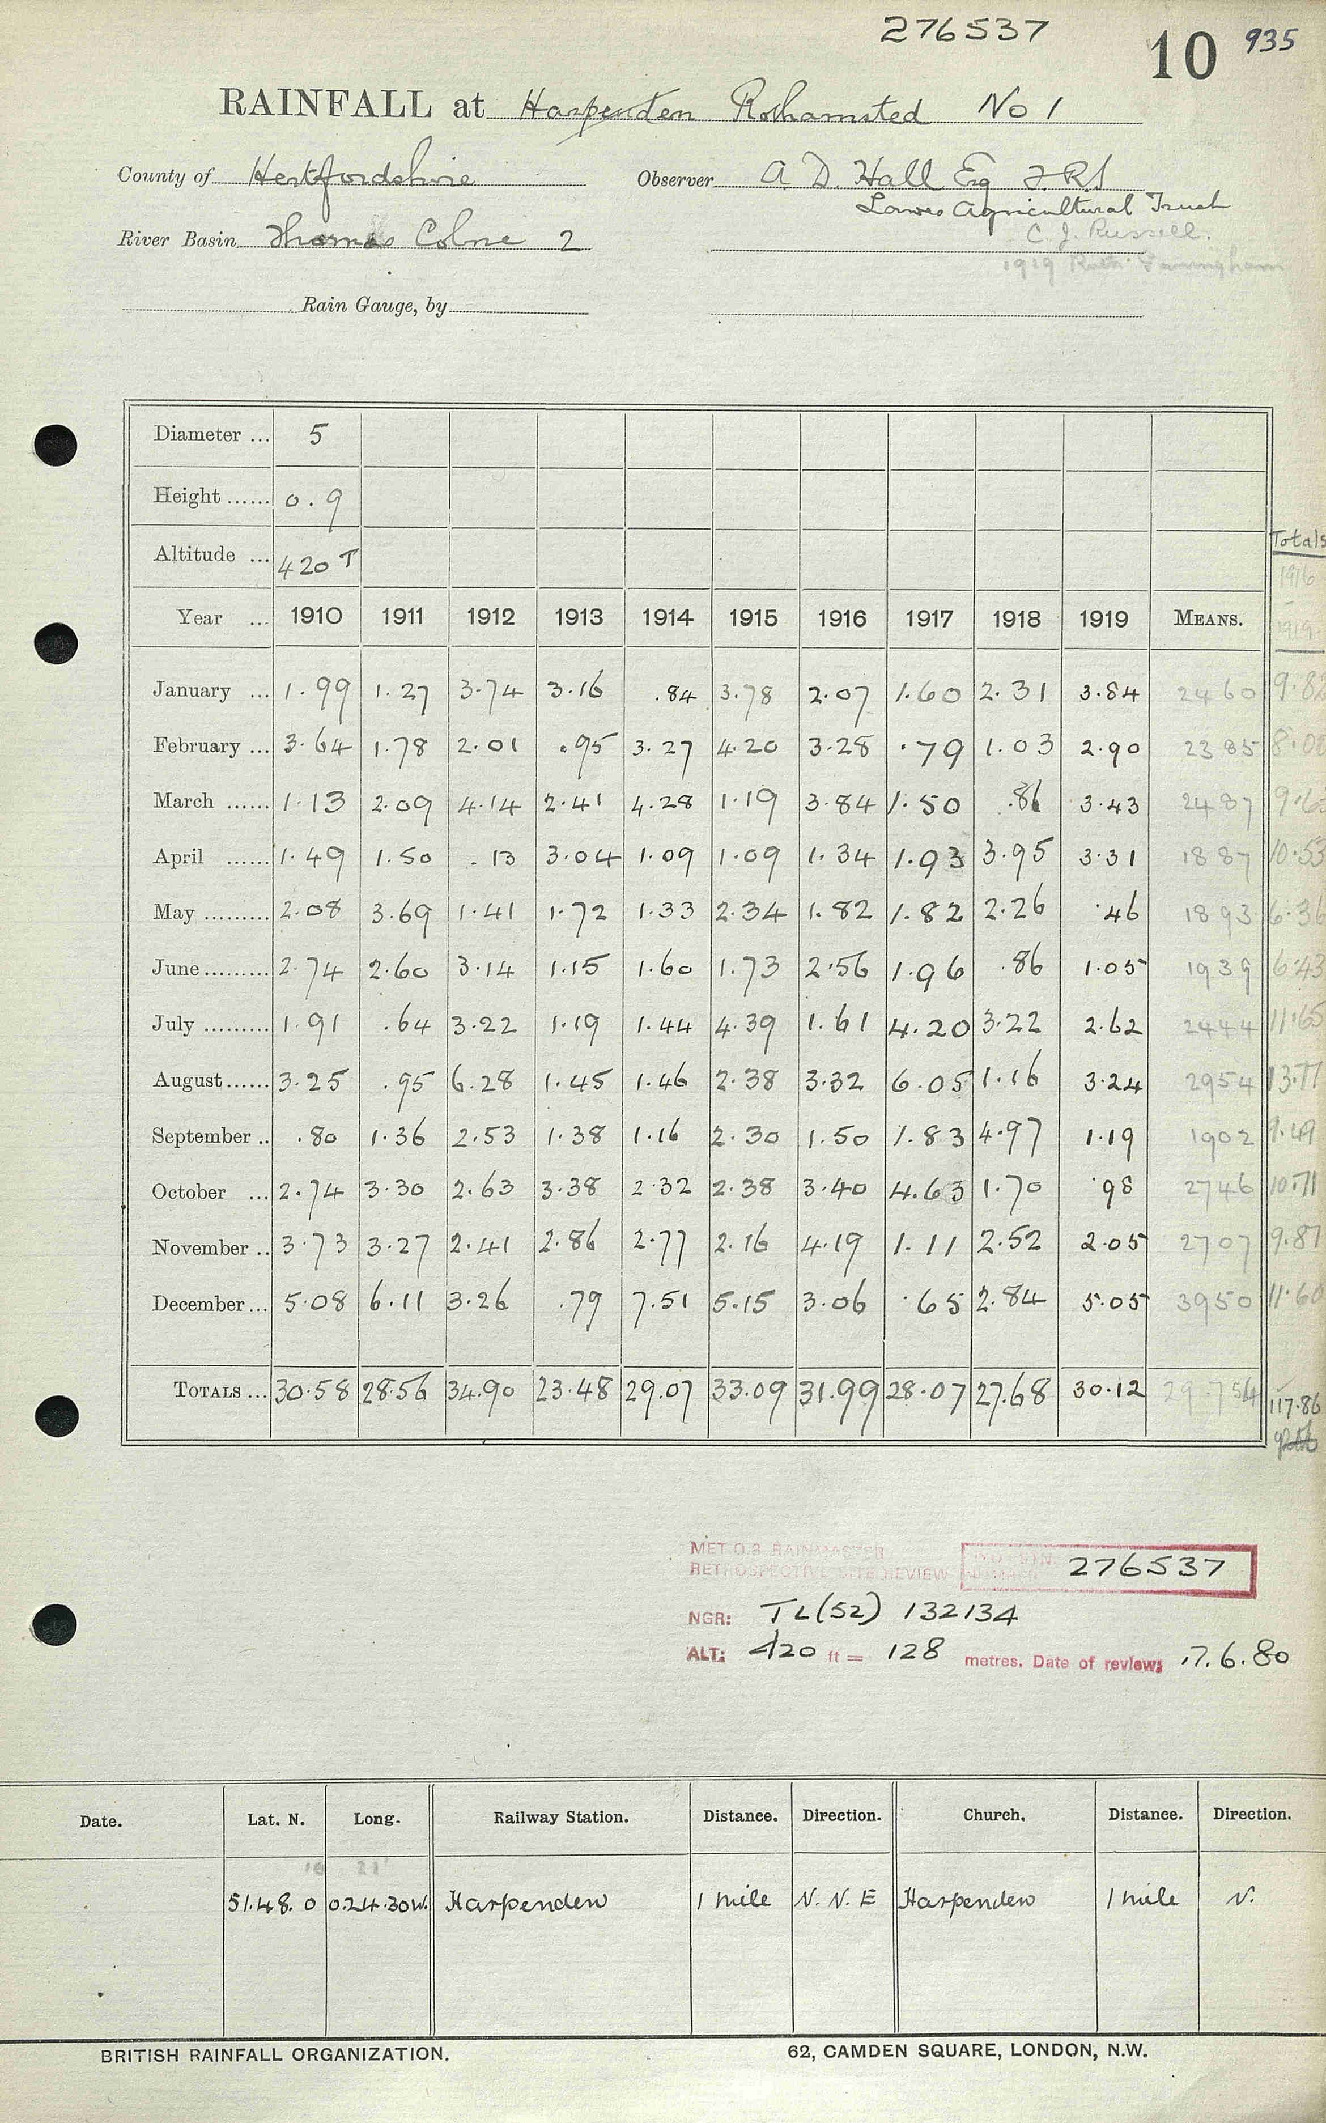 276537
10 935
RAINFALL at Harpenden Rothamsted No 1
County of Hertfordshire Observer A. D. Hall Esq F.R.S
Lawes Agricultural Trust
River Basin Thames Colne 2 Russell.
1919
Rain Gauge, by
Diameter ... 5
Height ...... 0.9
Altitude ... 420 T
Totals
1916
-
1919
Year ... 1910 1911 1912 1913 1914 1915 1916 1917 1918 1919 MEANS.
January ... 1.99 1.27 3.74 3.16 .84 3.78 2.07 1.60 2.31 3.84 2460 9.82
February ... 3.64 1.78 2.01 .95 3.27 4.20 3.28 .79 1.03 2.90 2385 8.00
March ...... 1.13 2.09 4.14 2.41 4.28 1.19 3.84 1.50 .86 3.43 2487 9.63
April ...... 1.49 1.50 .13 3.04 1.09 1.09 1.34 1.93 3.95 3.31 1887 10.53
May ......... 2.08 3.69 1.41 1.72 1.33 2.34 1.82 1.82 2.26 .46 1893 6.36
June ......... 2.74 2.60 3.14 1.15 1.60 1.73 2.56 1.96 .86 1.05 1939 6.43
July ......... 1.91 .64 3.22 1.19 1.44 4.39 1.61 4.20 3.22 2.62 2444 11.65
August ...... 3.25 .95 6.28 1.45 1.46 2.38 3.32 6.05 1.16 3.24 2954 13.77
September .. .80 1.36 2.53 1.38 1.16 2.30 1.50 1.83 4.97 1.19 1902 9.49
October ... 2.74 3.30 2.63 3.38 2.32 2.38 3.40 4.63 1.70 .98 2746 10.71
November .. 3.73 3.27 2.41 2.86 2.77 2.16 4.19 1.11 2.52 2.05 2707 9.87
December ... 5.08 6.11 3.26 .79 7.51 5.15 3.06 .65 2.84 5.05 3950 11.60
TOTALS ... 30.58 28.56 34.90 23.48 29.07 33.09 31.99 28.07 27.68 30.12 29.754 117.86
MET O.8 RAINMASTER
RETROSPECTIVE SITE REVIEW 276537
NGR: TL(52) 132134
ALT: 420 ft = 128 metres. Date of review: 17.6.80
Date. Lat. N. Long. Railway Station. Distance. Direction. Church. Distance. Direction.
51.48.0 0.24.30W. Harpenden 1 mile N.N.E Harpenden 1 mile N.
BRITISH RAINFALL ORGANIZATION. 62, CAMDEN SQUARE, LONDON, N.W.